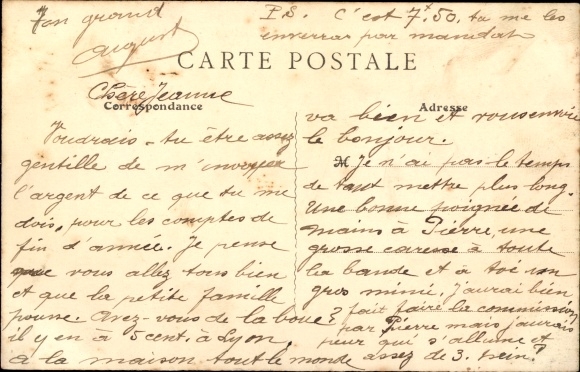 Ton grand
August
P.S. C'est 7f.50. tu me les
enverras par mandat
CARTE POSTALE
Chère Jeanne
Correspondance
Adresse
Voudrais-tu être assez
gentille de m'envoyer
l'argent de ce que tu me
dois, pour les comptes de
fin d'année. Je pense
que vous allez tous bien
et que la petite famille
pousse. Avez-vous de la boue?
il y en a 5 cent. à Lyon,
à la maison tout le monde
va bien et vous envoie
le bonjour.
Je n'ai pas le temps
de tout mettre plus long.
Une bonne poignée de
mains à Pierre, une
grosse caresse à toute
la bande et à toi un
gros mimi. J'aurai bien
fait faire la commission
par Pierre mais j'aurais
peur qui s'allume et
assez de 3.